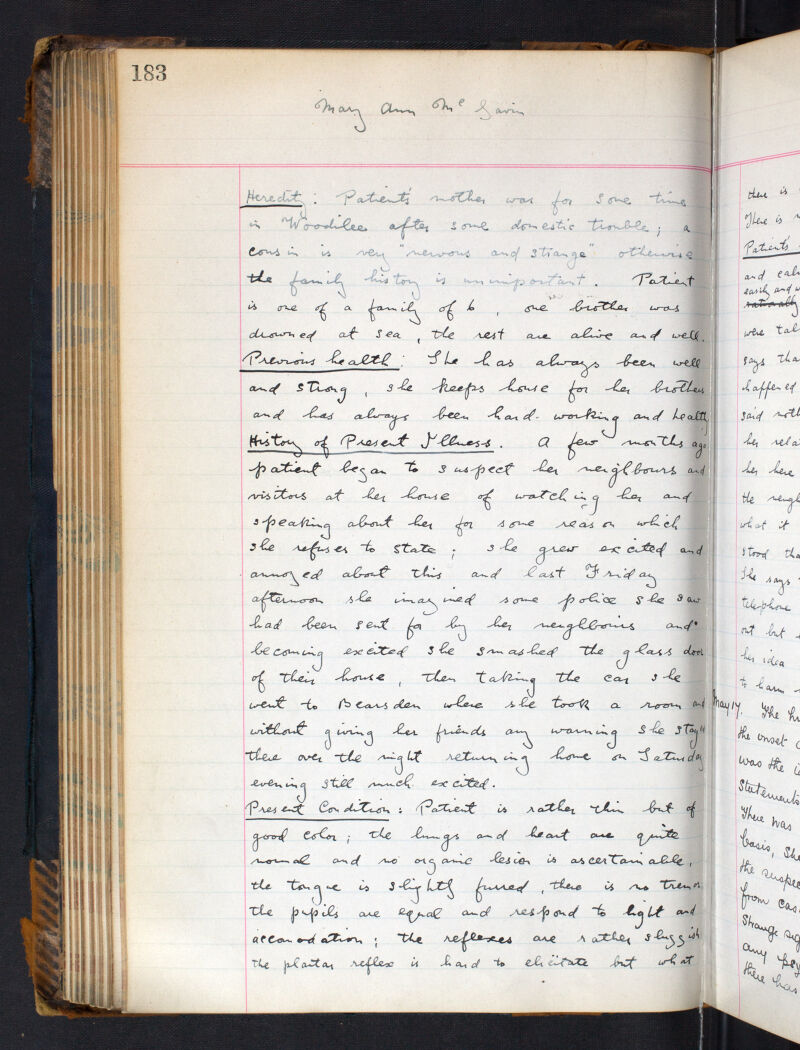 183
Mary Ann Mc Gavin
Heredity: Patient's mother was for some time
in Woodilee after some domestic trouble; a
cousin is very "nervous and strange" otherwise
the family history is unimportant. Patient
is one of a family of 6, one brother was
drowned at sea, the rest are alive and well.
Previous health: She has always been well
and strong, she keeps house for her brothers
and has always been hard-working and healthy
History of Present Illness. A few months ago
patient began to suspect her neighbours and
visitors at her house of watching her and
speaking about her for some reason which
she refuses to state; she grew excited and
annoyed about this and last Friday
afternoon she imagined some police she saw
had been sent for by her neighbours and
becoming excited she smashed the glass door
of their house, then taking the car she
went to Bearsden where she took a room and
without giving her friends any warning she stayed
there over the night returning home on Saturday
evening still much excited.
Present Condition: Patient is rather thin but of
good color; the lungs and heart are quite
normal and no organic lesion is ascertainable,
the tongue is slightly furred, there is no tremor
the pupils are equal and respond to light and
accomodation; the reflexes are rather sluggish
the plantar reflex is hard to elicitate but what
there is
There is
Patient's
and
easily and
rationally
were
says
happened
said
her
her here
the
what it
stood
She says
telephone
out but
her idea
to harm
May 17. The
the onset
was the
Statements
There was
basis, She
the
from
Strange
any
there has